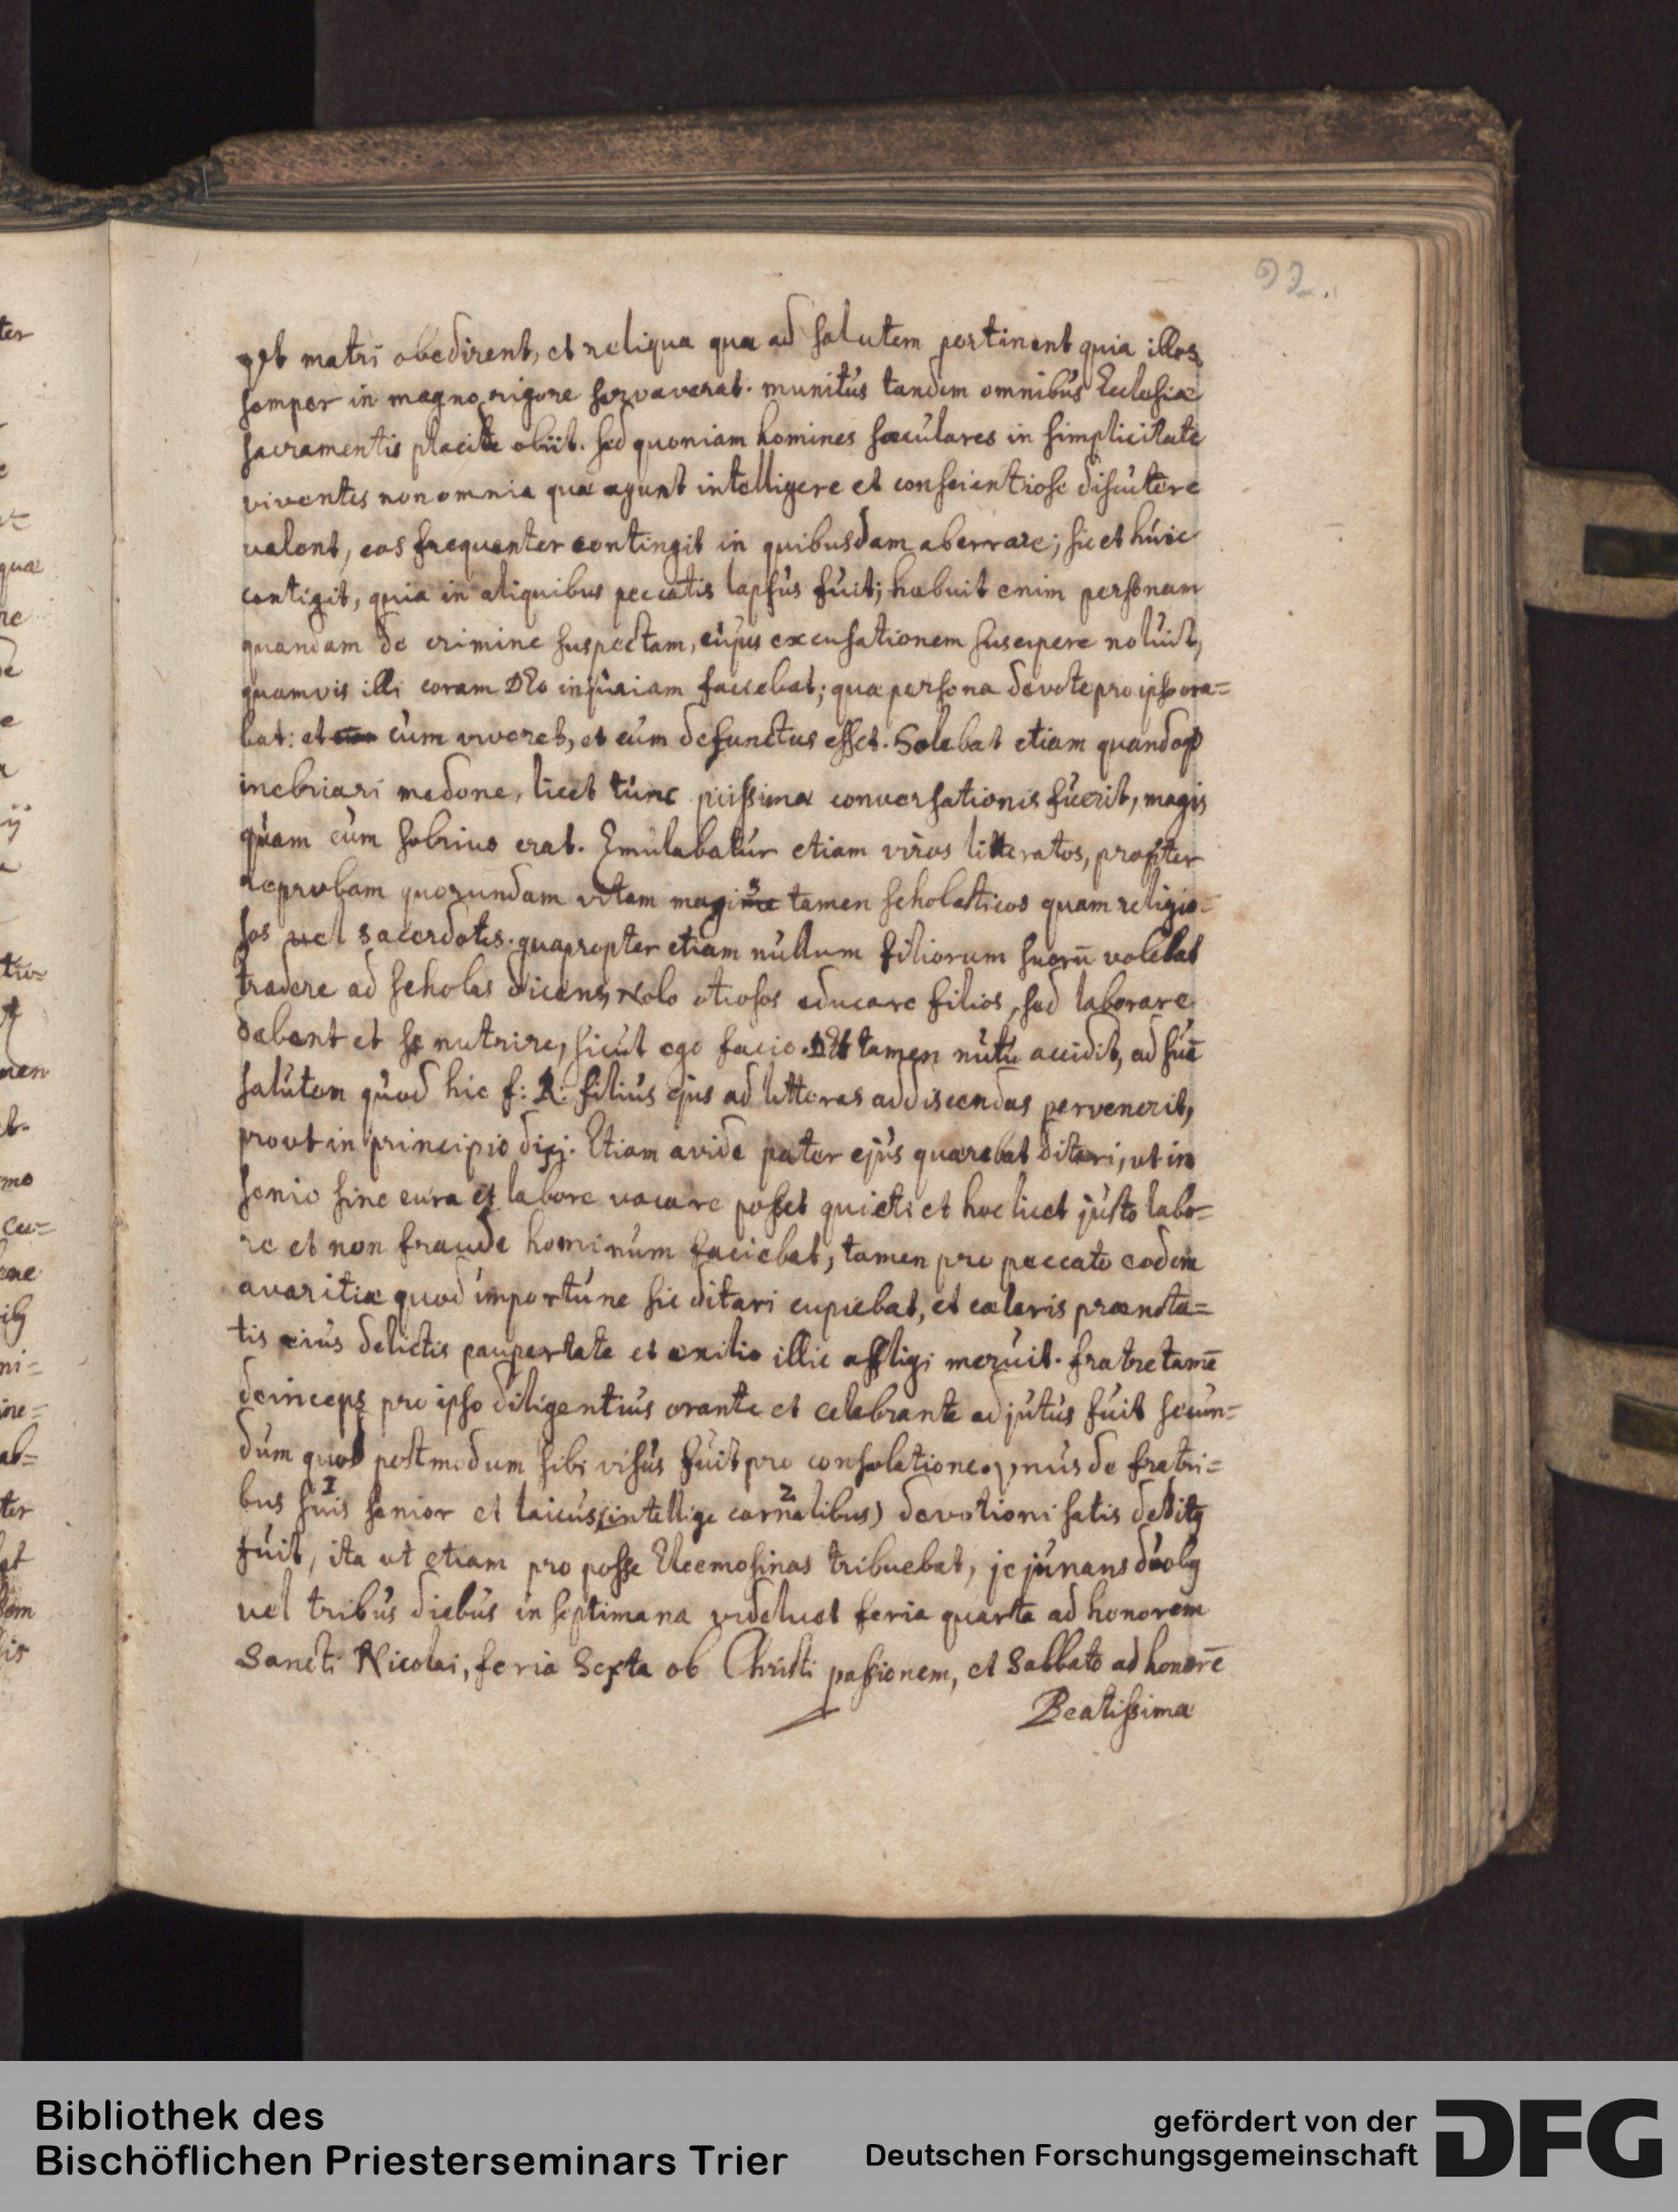 92.
et matri obedirent, et reliqua quæ ad salutem pertinent quia illos
semper in magno rigore servaverat. munitus tandem omnibus Ecclesiæ
sacramentis placite obiit. sed quoniam homines sæculares in simplicitate
viventes non omnia quæ agunt intelligere et conscientiose discutere
valent, eos frequenter contingit in quibusdam aberrare; sic et huic
contigit, quia in aliquibus peccatis lapsus fuit; habuit enim personam
quandam de crimine suspectam, cujus excusationem suscipere noluit,
quamvis illi coram DEo injuriam faciebat; quæ persona devote pro ipso ora=
bat: et cum viveret, et cum defunctus esset. Solebat etiam quandoq
inebriari medone, licet tunc piissimæ conversationis fuerit, magis
quam cum sobrius erat. Emulabatur etiam viros litteratos, propter
reprobam quorundam vitam magis tamen scholasticos quam religio=
sos vel sacerdotes. quapropter etiam nullum filiorum suorū volebat
tradere ad scholas dicens, Nolo otiosos educare filios, sed laborare
debent et se nutrire, sicut ego facio. DEI tamen nutu accidit, ad suā
salutem quod hic f: R: filius ejus ad litteras addiscendas pervenerit,
prout in principio dixi. Etiam avide pater ejus quærebat ditari, ut in
senio sine cura et labore vacare posset quieti et hoc licet justo labo=
re et non fraude hominum faciebat, tamen pro peccato eodem
avaritiæ quod importune sic ditari cupiebat, et cæteris prænota=
tis ejus delictis paupertate et exilio illic affligi meruit. fratre tamē
deinceps pro ipso diligentius orante et celebrante adjutus fuit secun=
dum quod postmodum sibi visus fuit pro consolatione. unus de fratri=
bus suis 1 senior et laicus (intellige carnalibus 2) devotioni satis deditq
fuit, ita ut etiam pro posse Eleemosinas tribuebat, jejunans duobq
vel tribus diebus in septimana videlicet feria quarta ad honorem
Sancti Nicolai, feria Sexta ob Christi passionem, et Sabbato ad honorē
Beatissimæ
Bibliothek des
Bischöflichen Priesterseminars Trier
gefördert von der
Deutschen Forschungsgemeinschaft
DFG